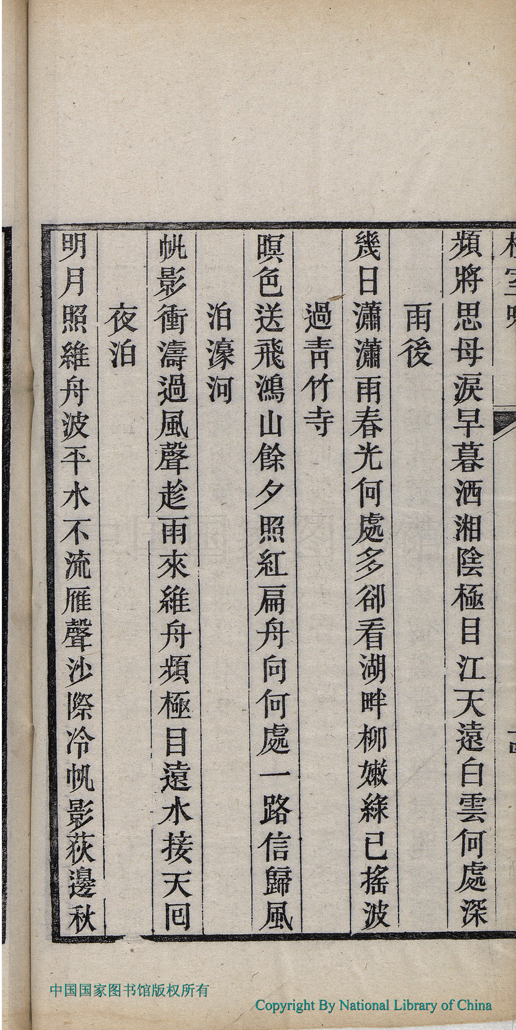 頻將思母淚早暮洒湘陰極目江天遠白雲何處深
雨後
幾日瀟瀟雨春光何處多卻看湖畔柳嫩綠已搖波
過靑竹寺
暝色送飛鴻山餘夕照紅扁舟向何處一路信歸風
泊濠河
帆影衝濤過風聲趁雨來維舟頻極目遠水接天囘
夜泊
明月照維舟波平水不流雁聲沙際冷帆影荻邊秋
中国国家图书馆版权所有
Copyright By National Library of China